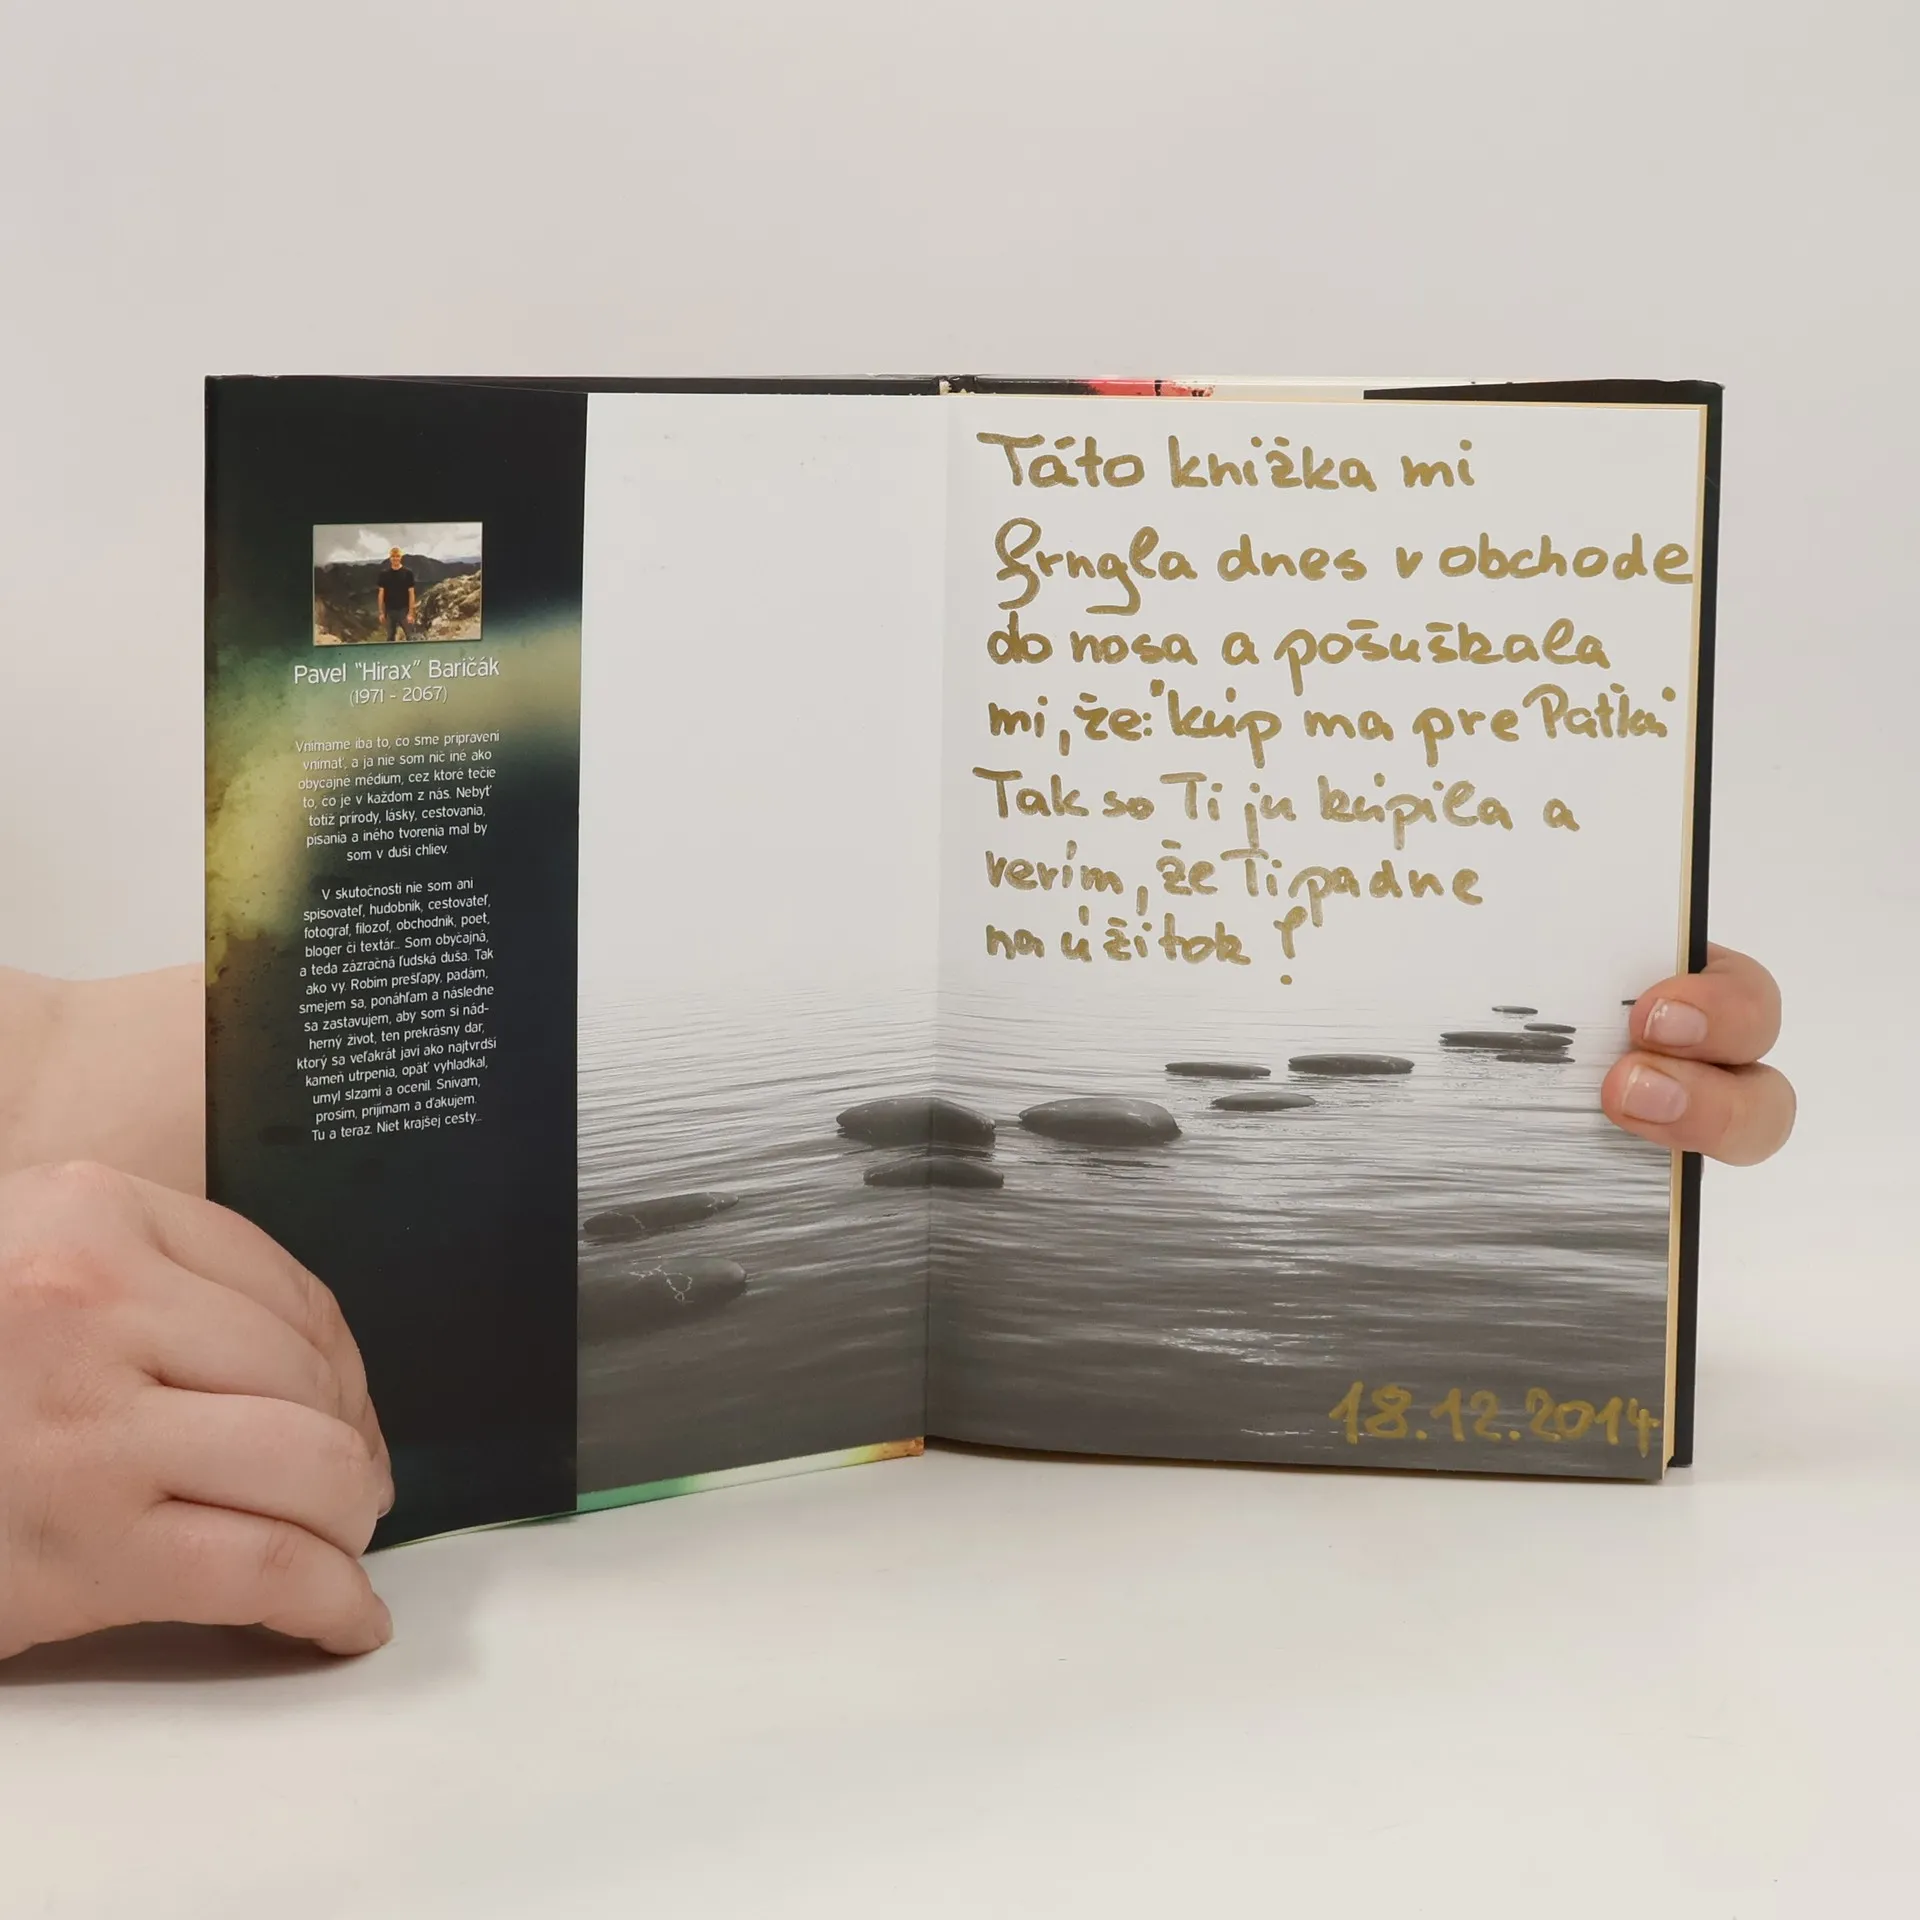 Pavel "Hirax" Baričák
(1971 - 2067)
Vnímame iba to, čo sme pripravení
vnímať, a ja nie som nič iné ako
obyčajné médium, cez ktoré tečie
to, čo je v každom z nás. Nebyť
totiž prírody, lásky, cestovania,
písania a iného tvorenia mal by
som v duši chliev.
V skutočnosti nie som ani
spisovateľ, hudobník, cestovateľ,
fotograf, filozof, obchodník, poet,
bloger či textár... Som obyčajná,
a teda zázračná ľudská duša. Tak
ako vy. Robím prešľapy, padám,
smejem sa, ponáhľam a následne
sa zastavujem, aby som si nád-
herný život, ten prekrásny dar,
ktorý sa veľakrát javí ako najtvrdší
kameň utrpenia, opäť vyhladkal,
umyl slzami a ocenil. Snívam,
prosím, prijímam a ďakujem.
Tu a teraz. Niet krajšej cesty...
Táto knižka mi
frngla dnes v obchode
do nosa a pošuškala
mi, že: "kúp ma pre Paťku"
Tak so Ti ju kúpila a
verím, že Ti padne
na úžitok!
18.12.2014